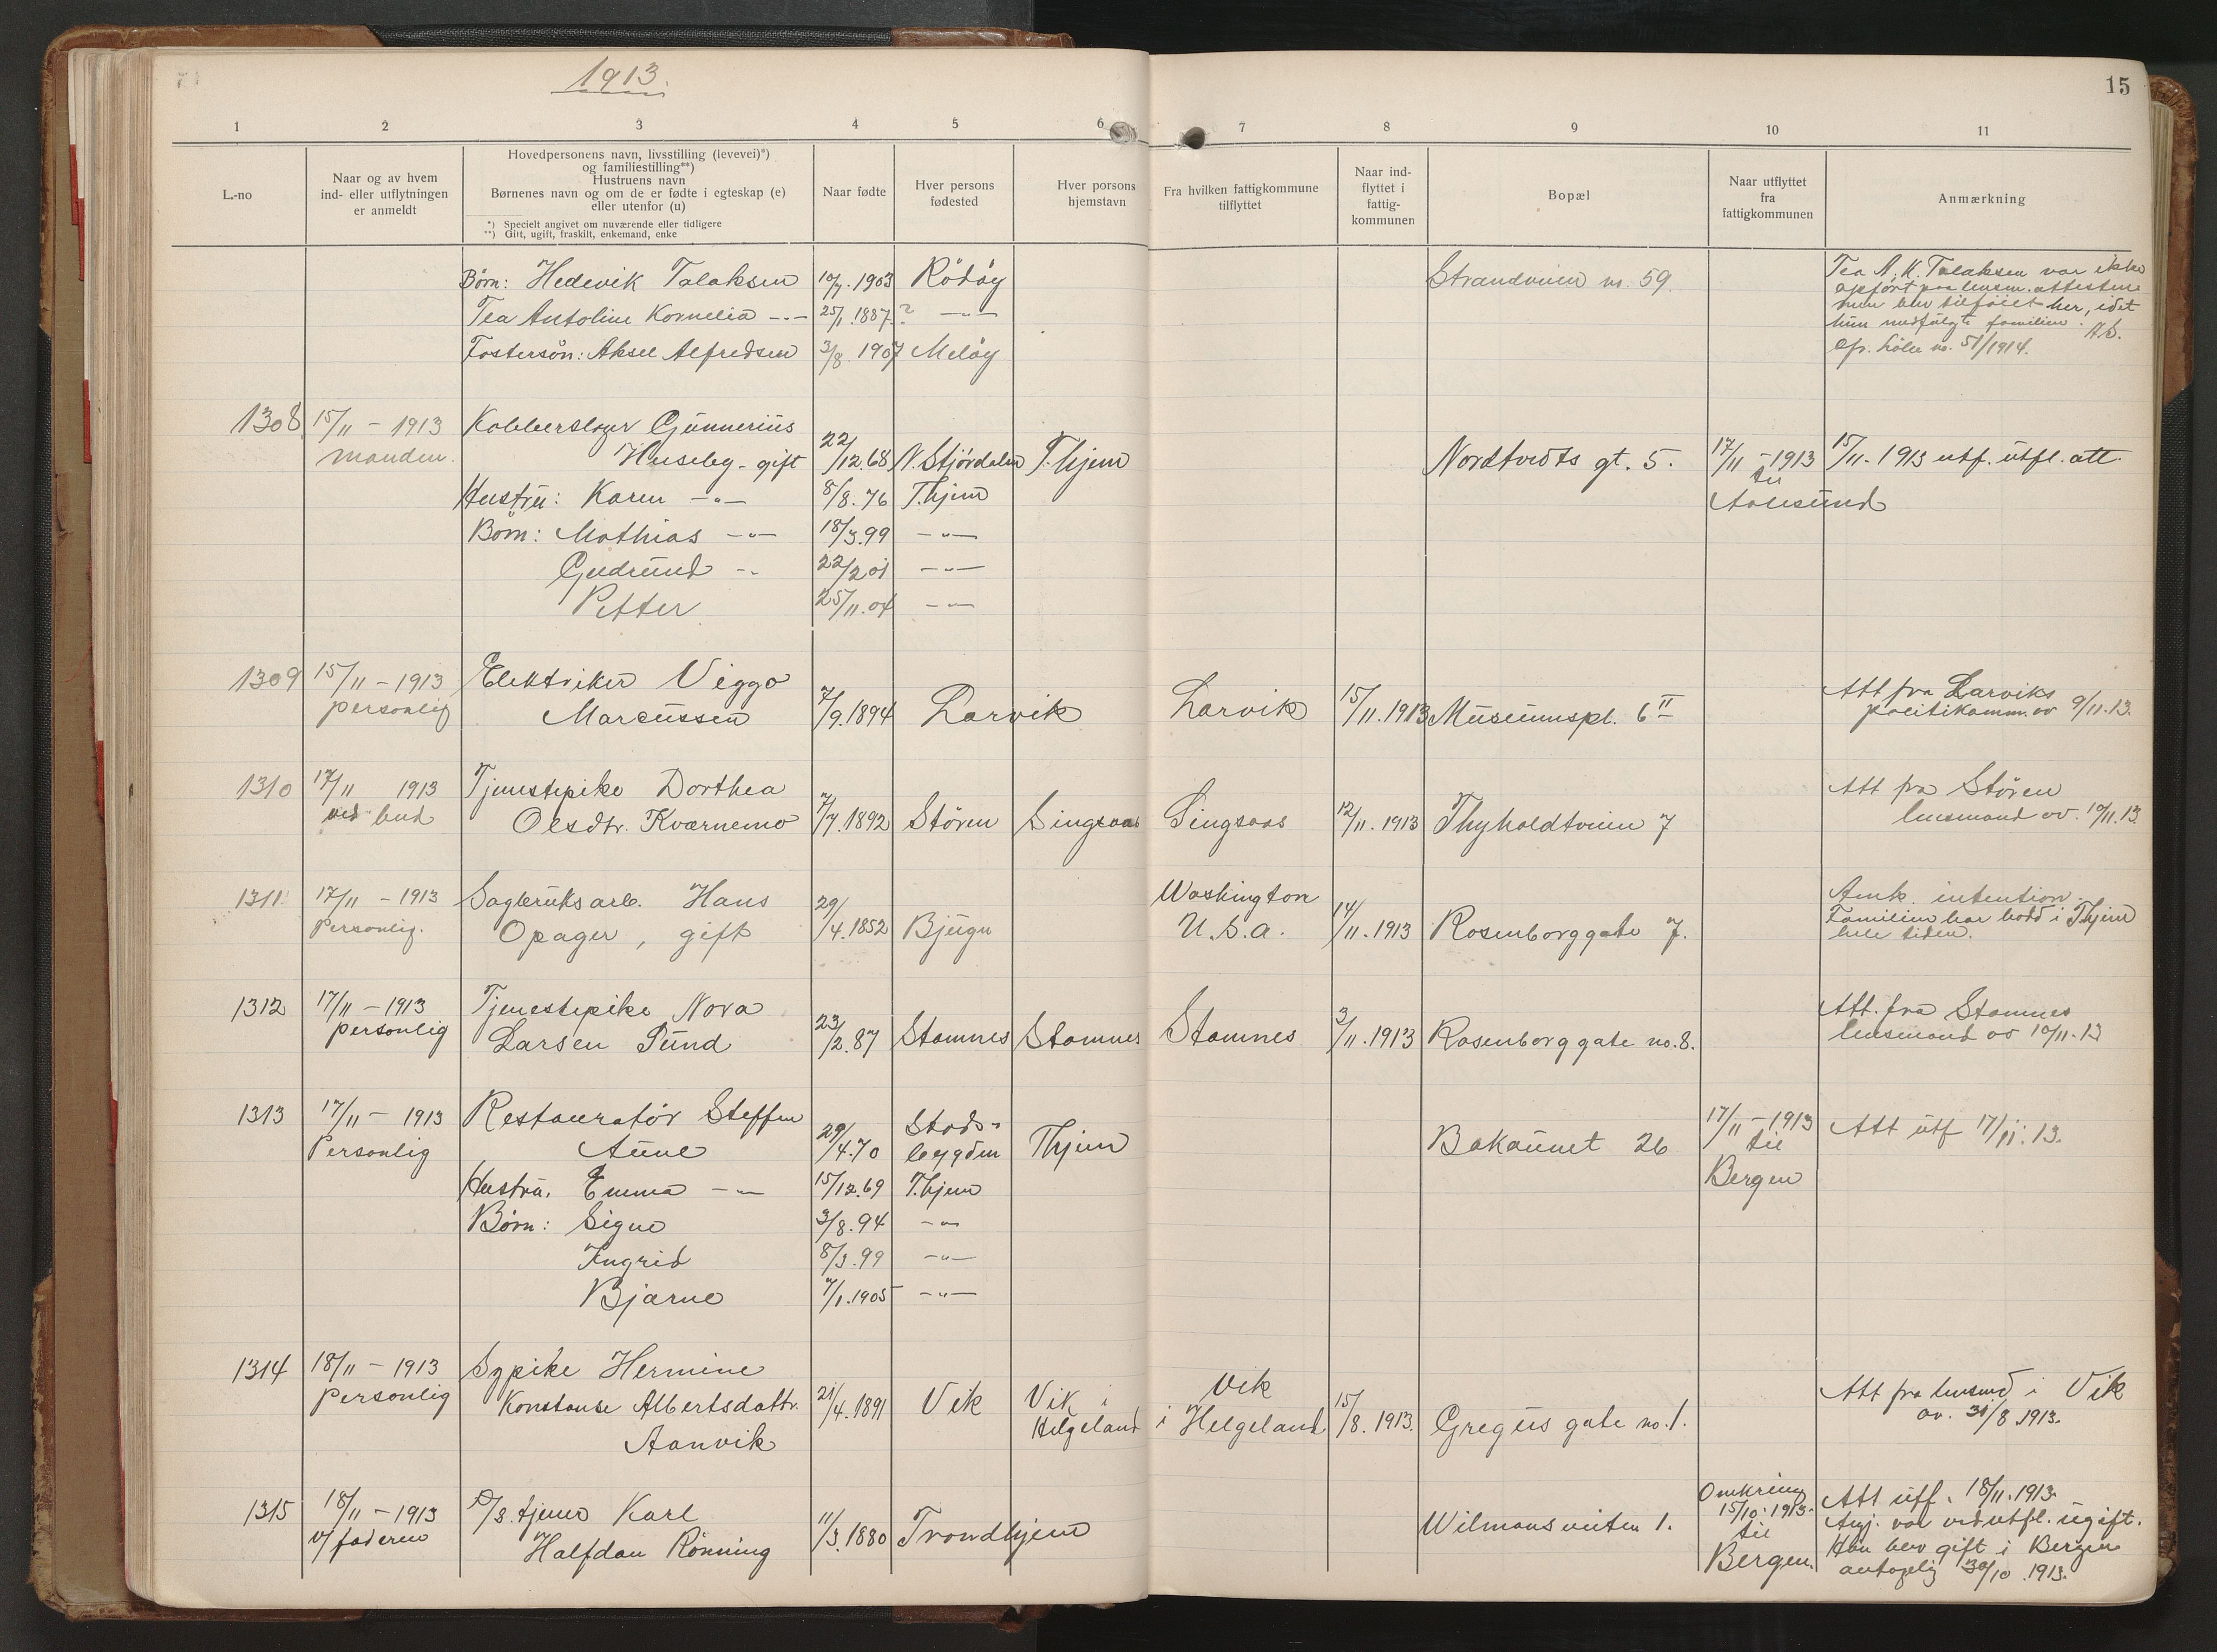 1913.
15
1 2 3 4 5 6 7 8 9 10 11
L.-no
Naar og av hvem
ind- eller utflytningen
er anmeldt
Hovedpersonens navn, livsstilling (levevei)*)
og familiestilling**)
Hustruens navn
Børnenes navn og om de er fødte i egteskap (e)
eller utenfor (u)
*) Specielt angivet om nuværende eller tidligere
**) Gift, ugift, fraskilt, enkemand, enke
Naar fødte
Hver persons
fødested
Hver persons
hjemstavn
Fra hvilken fattigkommune
tilflyttet
Naar ind-
flyttet i
fattig-
kommunen
Bopæl
Naar utflyttet
fra
fattigkommunen
Anmærkning
Børn: Hedevik Talaksen 10/7. 1903 Rödöy Strandveien no. 59.
Tea Antoline Kornelia -"- 25/1. 1887? -"-
Fostersön: Aksel Alfredsen 3/8. 1907 Melöy
Tea A. K. Talaksen var ikke
opfört paa lensm. attesten
men blev tilföiet her, idet
hun medfulgte familien.
Cfr. löbe no. 51/1914.
1308 15/11 - 1913 Kobberslager Gunnerius
manden. Huseby - gift 22/12.68 N. Stjördalen T.hjem Nordtvedts gt. 5. 17/11 - 1913 15/11. 1913 utf. utfl. att.
til
Hustru: Karen -"- 8/8. 76 T.hjem Aalesund
Børn: Mathias -"- 18/3.99 -"-
Gudrund -"- 22/2 01 -"-
Petter 25/11.04 -"-
1309 15/11 - 1913 Elektriker Viggo
personlig Marcussen 7/9.1894 Larvik Larvik 15/11.1913 Museumspl. 6 II
Att fra Larviks
politikamm. av 9/11.13.
1310 17/11 1913 Tjenestepike Dorthea
ved bud Olsdtr. Kværnemo 7/7.1892 Stören Singsaas Singsaas 12/11. 1913 Thyholdtveien 7
Att fra Stören
lensmand av. 10/11.13.
1311. 17/11 - 1913 Sagbruksarb. Hans
Personlig. Opager, gift 29/4.1852 Bjugn
Washington
U.S.a. 14/11.1913 Rosenborggate 7.
Amk. intention.
Familien har bodd i Thjem
hele tiden.
1312 17/11 - 1913 Tjenestepike Nora
personlig Larsen Sund 23/2.87 Stamnes Stamnes Stamnes 3/11.1913 Rosenborggate no.8.
Att. fra Stamnes
lensmand av 10/11.13
1313 17/11 - 1913 Restauratör Steffen
Personlig Aune 29/4.70 Stads-
bygden Thjem Bakaunet 26 17/11 - 1913 Att utf 17/11.13.
til
Bergen
Hustru. Emma -"- 15/12.69 T.hjem
Børn: Signe 3/8.94 -"-
Ingrid 8/3.99 -"-
Bjarne 7/1.1905 -"-
1314 18/11 - 1913 Sypike Hermine
personlig Konstanse Albertsdattr. 21/4.1891 Vik Vik i
Helgeland
Aanvik
Vik
i Helgeland 15/8. 1913. Gregus gate no.1.
Att fra lensmd i Vik
av. 31/8 1913.
1315 18/11 - 1913 D/S. tjener Karl
v/ faderen Halfdan Rönning 11/3.1880 Trondhjem Wilmansveiten 1.
Omkring
15/10.1913.
til
Bergen.
Att utf. 18/11.1913.
Angj. var ved utfl. ugift.
Han blev gift i Bergen
antagelig 30/10 1913.